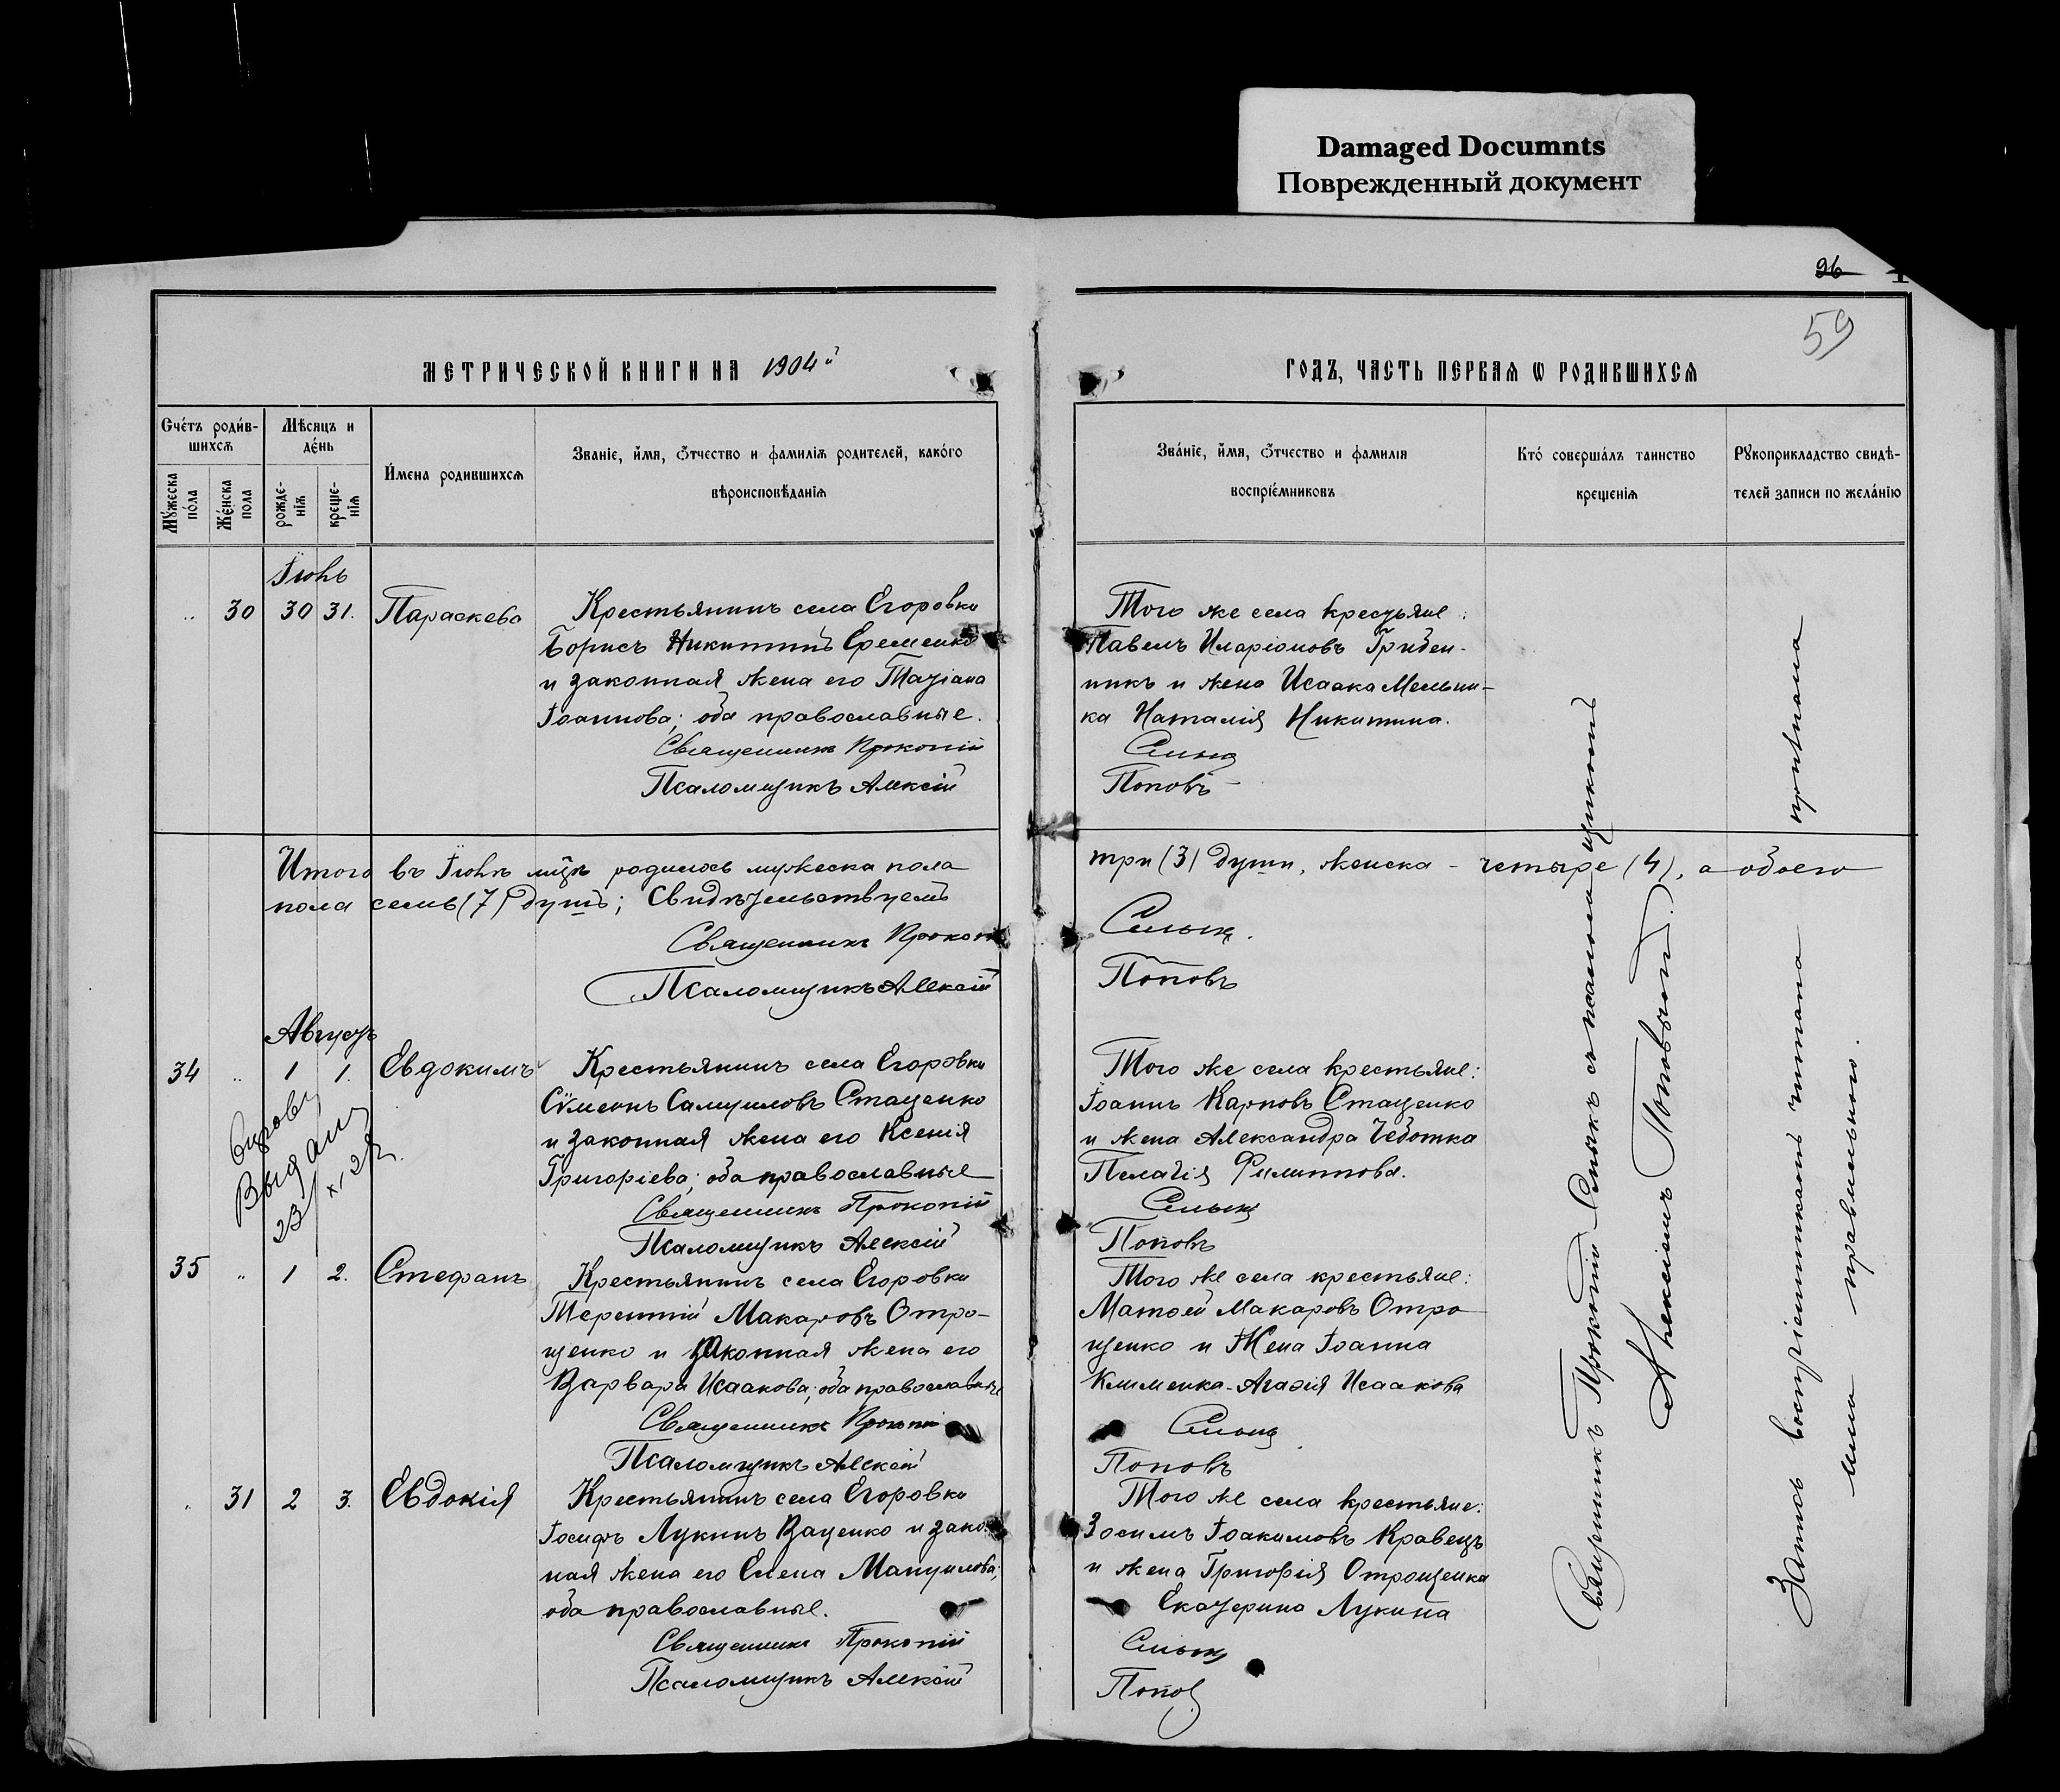 Damaged Documnts
Поврежденный документ
96
59
МЕТРИЧЕСКОЙ КНИГИ НА 1904й
ГОДЪ, ЧАСТЬ ПЕРВАЯ Ѡ РОДИВШИХСЯ
Счетъ родив-
шихся
Мужеска
пола
Женска
пола
Мѣсяцъ и
день
рожде-
нія
креще-
нія
Имена родившихся
Званіе, имя, отчество и фамилія родителей, какого
вѣроисповѣданія
Званіе, имя, отчество и фамилія
воспріемниковъ
Кто совершалъ таинство
крещенія
Рукоприкладство свидѣ-
телей записи по желанію
Іюнь
" 30 30 31. Параскева
Крестьянинъ села Егоровки
Борисъ Никитинъ Еременко
и законная жена его Татіана
Іоаннова; оба православные.
Священникъ Прокопій
Псаломщикъ Алексій
Того же села крестьяне:
Павелъ Иларіоновъ Гребен-
никъ и жена Исаака Мельни-
ка Наталія Никитина.
Поповъ
Итого въ Іюнѣ мцѣ родилось мужеска пола
три (3) души, женска - четыре (4), а обоего
пола семь (7) душъ; Свидѣтельствуемъ
Священникъ Прокопій
Псаломщикъ Алексій
Поповъ
Августъ
34 " 1 1. Евдокимъ
Выдана
23/XI 2
Крестьянинъ села Егоровки
Сѵмеонъ Самуиловъ Стаценко
и законная жена его Ксенія
Григоріева; оба православные
Священникъ Прокопій
Псаломщикъ Алексій
Того же села крестьяне:
Іоаннъ Карповъ Стаценко
и жена Александра Чеботка
Пелагія Филиппова.
Поповъ
35 " 1 2. Стефанъ
Крестьянинъ села Егоровки
Терентій Макаровъ Отро-
щенко и законная жена его
Варвара Исаакова; оба православные
Священникъ Прокопій
Псаломщикъ Алексій
Того же села крестьяне:
Матѳей Макаровъ Отро
щенко и Жена Іоанна
Клименка - Агафія Исаакова
Поповъ
" 31 2 3. Евдокія
Крестьянинъ села Егоровки
Іосифъ Лукинъ Ваценко и закон
ная жена его Елена Мануилова;
оба православные.
Священникъ Прокопій
Псаломщикъ Алексій
Того же села крестьяне:
Зосимъ Іоакимовъ Кравецъ
и жена Григорія Отрощенка
Екатерина Лукина
Попов
Священникъ Прокопій съ псаломщикомъ
Алексіемъ Поповымъ.
Запись воспріемникамъ читана
ими правильною. признана